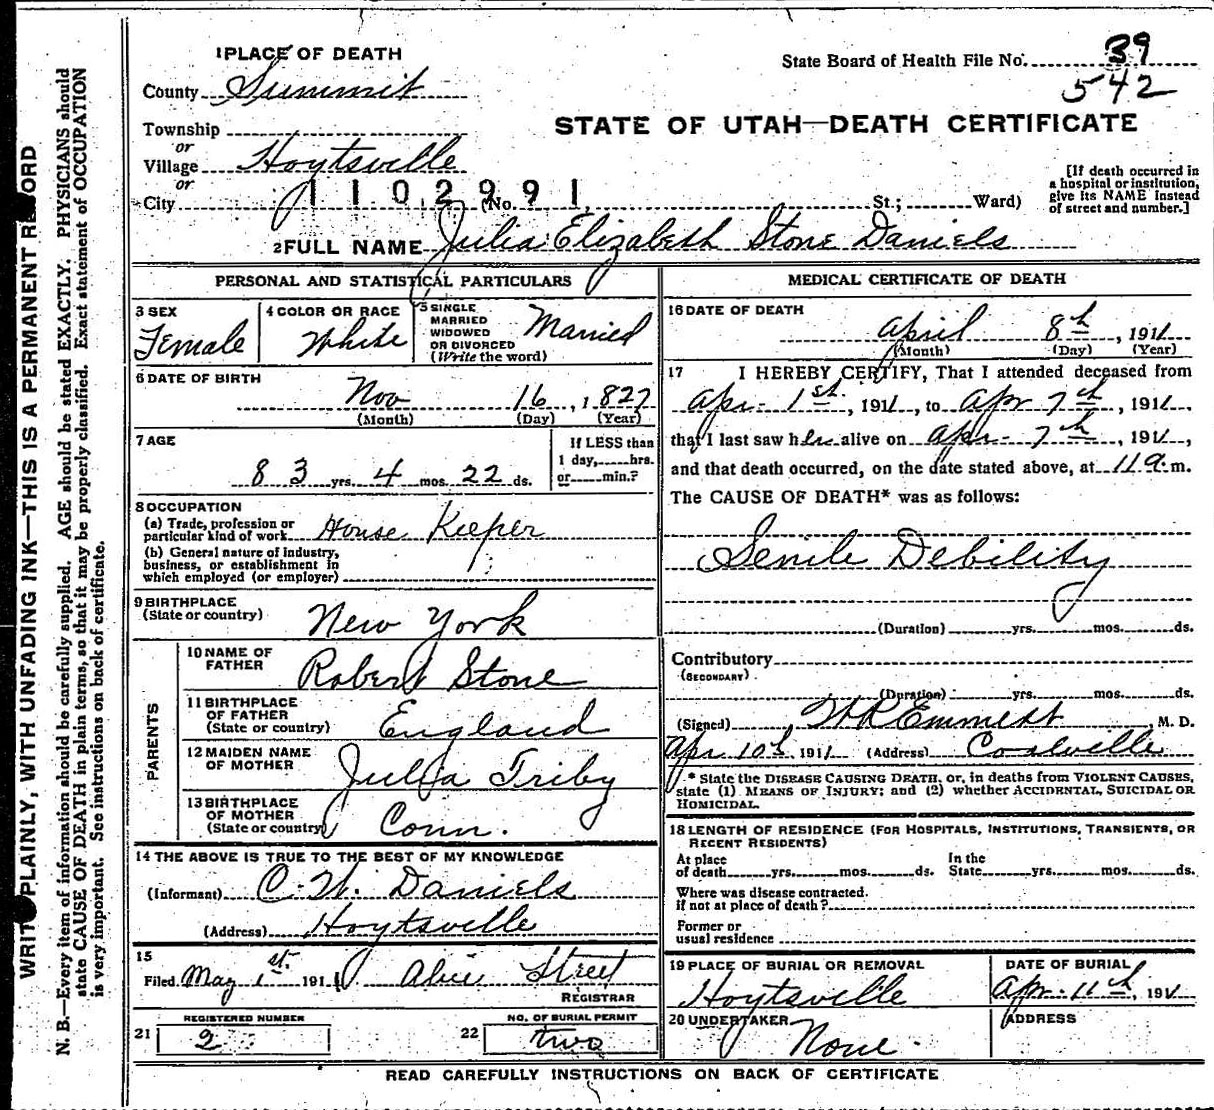 WRITE PLAINLY, WITH UNFADING INK—THIS IS A PERMANENT RECORD
N. B.—Every item of information should be carefully supplied. AGE should be stated EXACTLY. PHYSICIANS should
state CAUSE OF DEATH in plain terms, so that it may be properly classified. Exact statement of OCCUPATION
is very important. See instructions on back of certificate.
1 PLACE OF DEATH
State Board of Health File No. 39
542
County Summit
STATE OF UTAH—DEATH CERTIFICATE
Township
or
Village Hoytsville
or
City 1102991 (No. St.; Ward)
[If death occurred in
a hospital or institution,
give its NAME instead
of street and number.]
2 FULL NAME Julia Elizabeth Stone Daniels
PERSONAL AND STATISTICAL PARTICULARS
3 SEX
Female
4 COLOR OR RACE
White
5 SINGLE
MARRIED
WIDOWED
OR DIVORCED
(Write the word)
Married
6 DATE OF BIRTH
Nov 16, 1827
(Month) (Day) (Year)
7 AGE
83 yrs. 4 mos. 22 ds.
If LESS than
1 day, hrs.
or min.?
8 OCCUPATION
(a) Trade, profession or
particular kind of work House Keeper
(b) General nature of industry,
business, or establishment in
which employed (or employer)
9 BIRTHPLACE
(State or country) New York
PARENTS
10 NAME OF
FATHER Robert Stone
11 BIRTHPLACE
OF FATHER
(State or country) England
12 MAIDEN NAME
OF MOTHER Julia Triby
13 BIRTHPLACE
OF MOTHER
(State or country) Conn.
14 THE ABOVE IS TRUE TO THE BEST OF MY KNOWLEDGE
(Informant) C. W. Daniels
(Address) Hoytsville
15
Filed May 1st. 1911 Alice Street
REGISTRAR
REGISTERED NUMBER
21 2
NO. OF BURIAL PERMIT
22 two
MEDICAL CERTIFICATE OF DEATH
16 DATE OF DEATH
April 8th, 1911
(Month) (Day) (Year)
17 I HEREBY CERTIFY, That I attended deceased from
Apr- 1st., 1911, to Apr 7th, 1911,
that I last saw her alive on Apr- 7th, 1911,
and that death occurred, on the date stated above, at 11 a. m.
The CAUSE OF DEATH* was as follows:
Senile Debility
(Duration) yrs. mos. ds.
Contributory
(SECONDARY)
(Duration) yrs. mos. ds.
(Signed) Emmett, M. D.
Apr 10th, 1911 (Address) Coalville
* State the DISEASE CAUSING DEATH, or, in deaths from VIOLENT CAUSES,
state (1) MEANS OF INJURY; and (2) whether ACCIDENTAL, SUICIDAL OR
HOMICIDAL.
18 LENGTH OF RESIDENCE (FOR HOSPITALS, INSTITUTIONS, TRANSIENTS, OR
RECENT RESIDENTS)
At place
of death yrs. mos. ds.
In the
State yrs. mos. ds.
Where was disease contracted.
if not at place of death?
Former or
usual residence
19 PLACE OF BURIAL OR REMOVAL
Hoytsville
DATE OF BURIAL
Apr. 11th, 1911
20 UNDERTAKER
None.
ADDRESS
READ CAREFULLY INSTRUCTIONS ON BACK OF CERTIFICATE